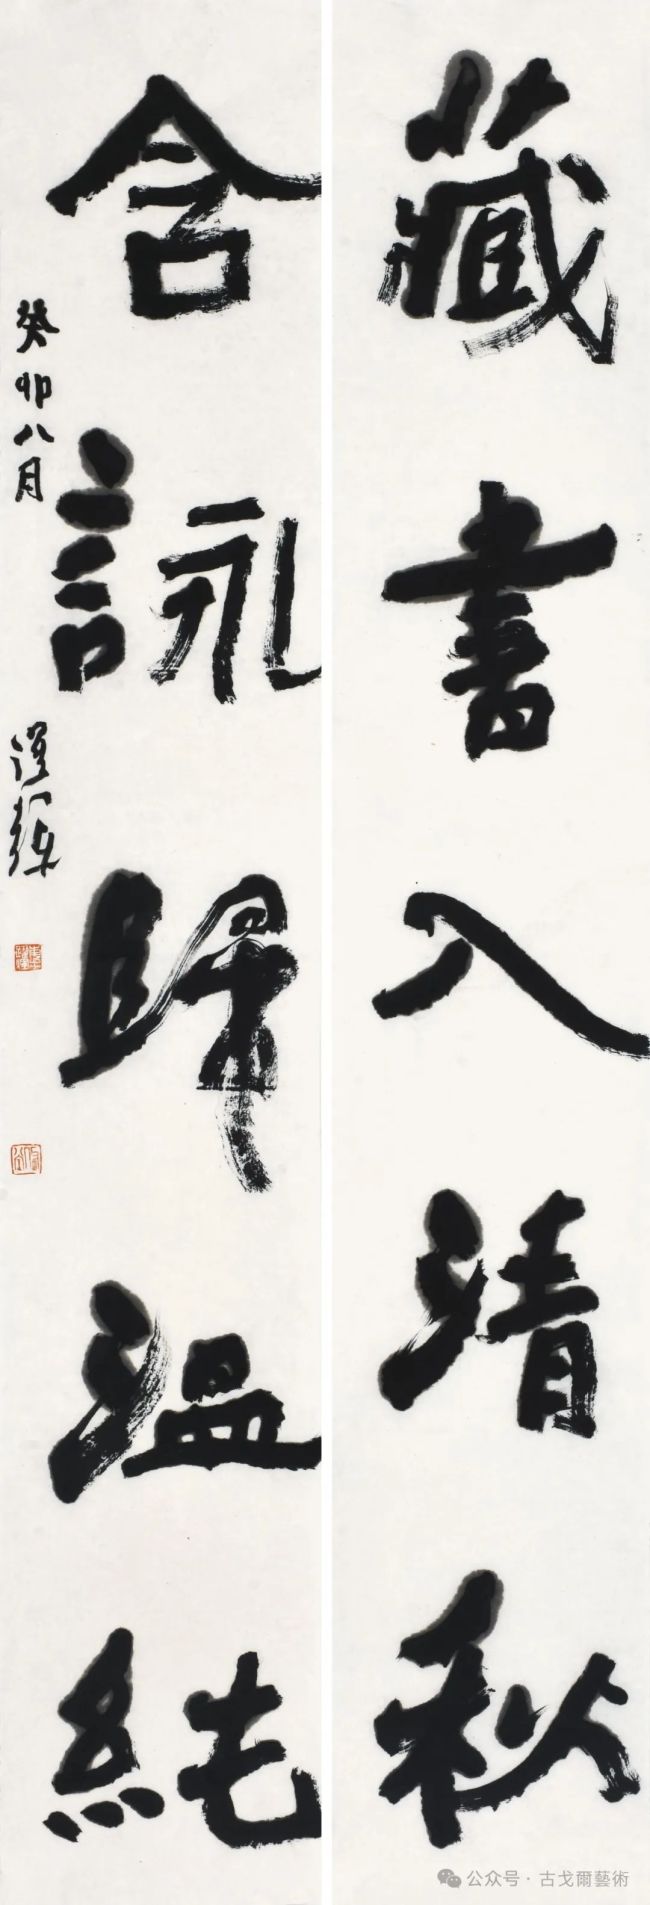 藏書入清秋
含詠歸溫純
癸卯八月
公众号·古戈爾藝術